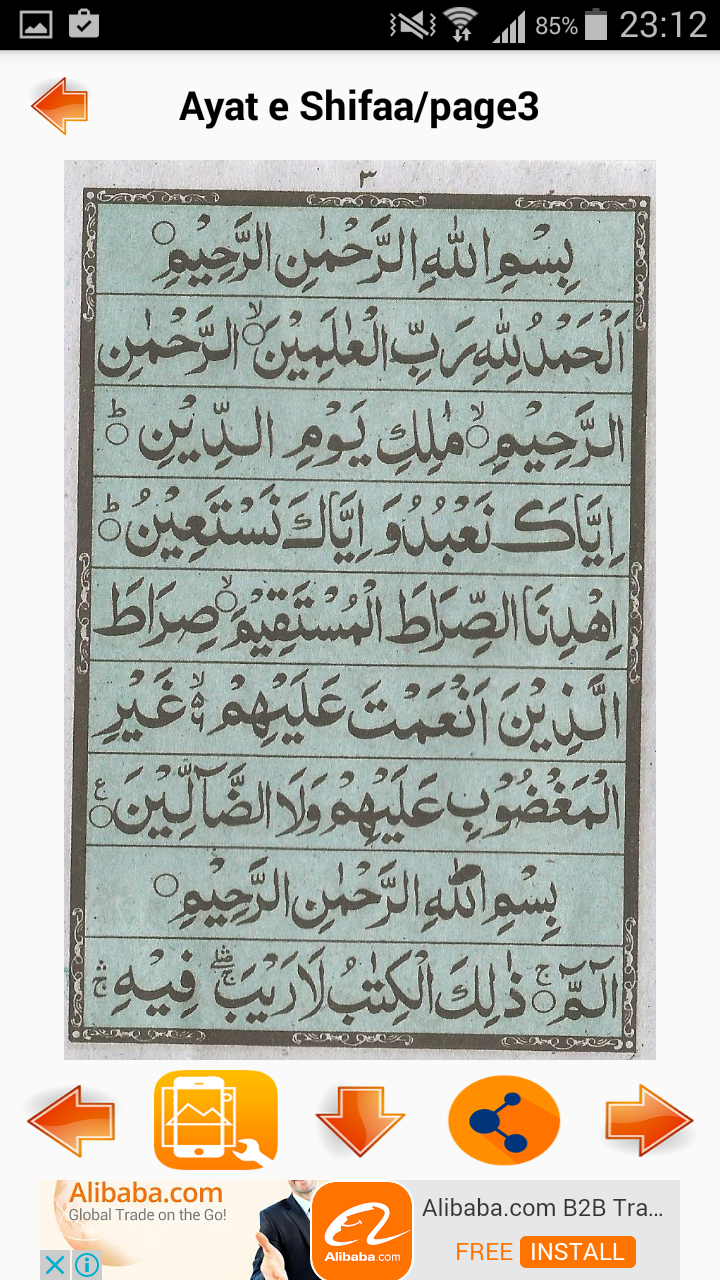 85% 23:12
Ayat e Shifaa/page3
٣
بِسْمِ اللّٰهِ الرَّحْمٰنِ الرَّحِيْمِ○
اَلْحَمْدُ لِلّٰهِ رَبِّ الْعٰلَمِيْنَ○ۙ الرَّحْمٰنِ
الرَّحِيْمِ○ۙ مٰلِكِ يَوْمِ الدِّيْنِ○ؕ
اِيَّاكَ نَعْبُدُ وَ اِيَّاكَ نَسْتَعِيْنُ○ؕ
اِهْدِنَا الصِّرَاطَ الْمُسْتَقِيْمَ○ۙ صِرَاطَ
الَّذِيْنَ اَنْعَمْتَ عَلَيْهِمْ ۙ۬ غَيْرِ
الْمَغْضُوْبِ عَلَيْهِمْ وَلَا الضَّآلِّيْنَ○ع
بِسْمِ اللّٰهِ الرَّحْمٰنِ الرَّحِيْمِ○
الٓمّٓ○ۚ ذٰلِكَ الْكِتٰبُ لَا رَيْبَ ۖۚ فِيْهِ ۛۚ
Alibaba.com
Global Trade on the Go!
Alibaba.com
Alibaba.com B2B Tra...
FREE INSTALL